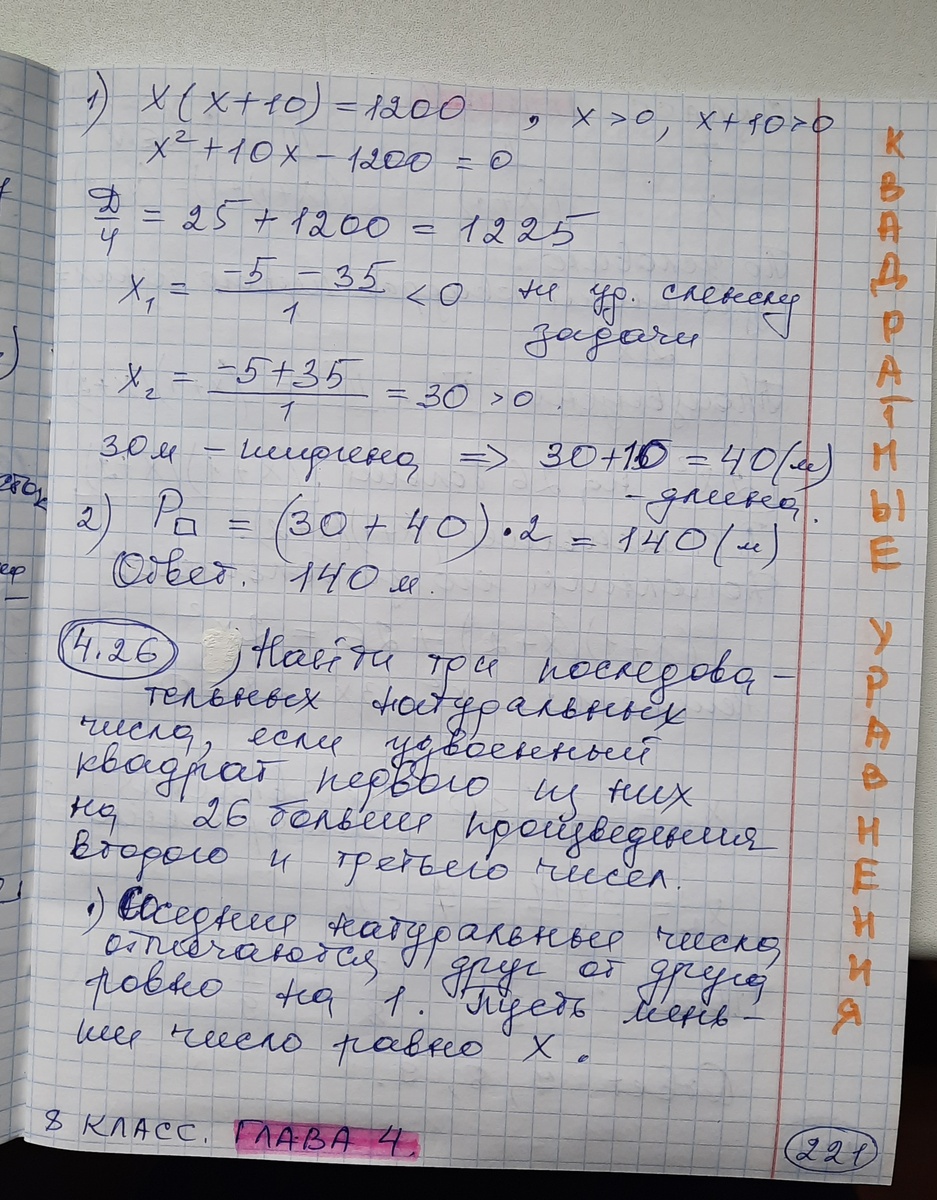 1) x(x+10)=1200, x>0, x+10>0
x²+10x-1200=0
Д/4 = 25+1200 = 1225
x₁ = (-5-35)/1 < 0 не уд. смыслу
задачи
x₂ = (-5+35)/1 = 30 >0.
30м - ширина => 30+10=40(м)
- длина.
2) P▭ = (30+40)·2 = 140(м)
Ответ. 140м.
4.26 Найти три последова-
тельных натуральных
числа, если удвоенный
квадрат первого из них
на 26 больше произведения
второго и третьего чисел.
•) Соседние натуральные числа
отличаются друг от друга
ровно на 1. Пусть мень-
ше число равно x.
8 КЛАСС. ГЛАВА 4.
221
КВАДРАТНЫЕ УРАВНЕНИЯ